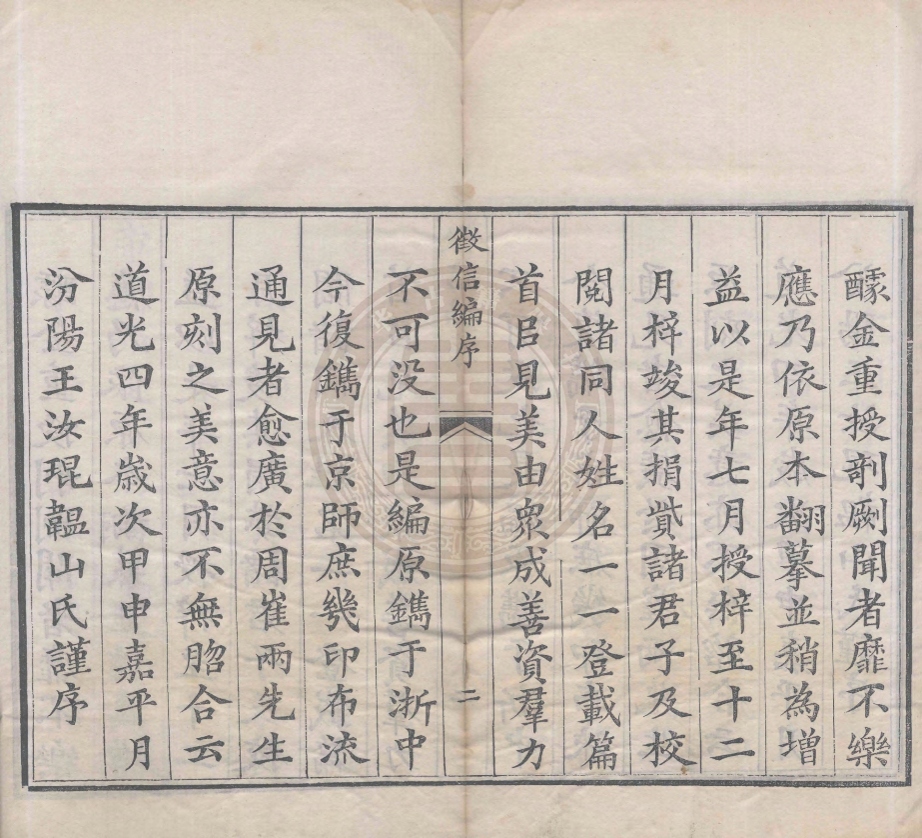 醵金重授剞劂聞者靡不樂
應乃依原本翻摹並稍為增
益以是年七月授梓至十二
月梓竣其捐貲諸君子及校
閱諸同人姓名一一登載篇
首㠯見美由眾成善資羣力
徵信編序
二
不可没也是編原鐫于浙中
今復鐫于京師庶幾印布流
通見者愈廣於周崔兩先生
原刻之美意亦不無脗合云
道光四年歲次甲申嘉平月
汾陽王汝琨韞山氏謹序